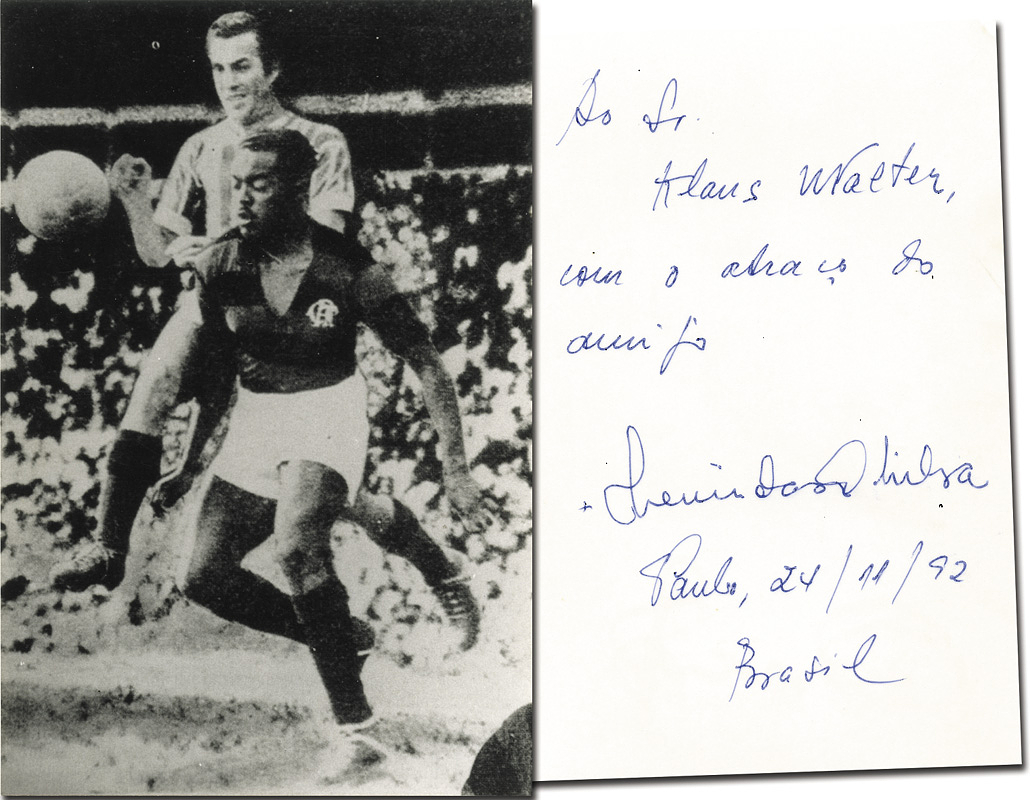 Ao Sr.
Klaus Walter,
com o abraço do
amigo
Leônidas da Silva
S. Paulo, 24/11/92
Brasil